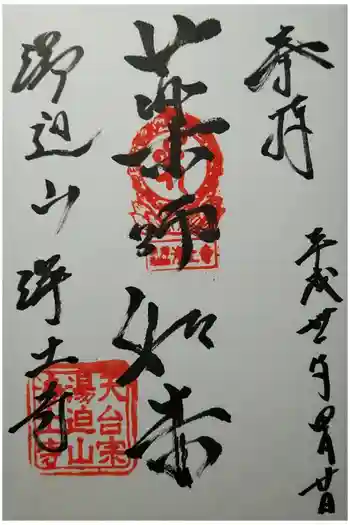 奉拝
平成廿一年四月廿日
薬師如来
湯迫山
浄土寺
天台宗
湯迫山
浄土寺